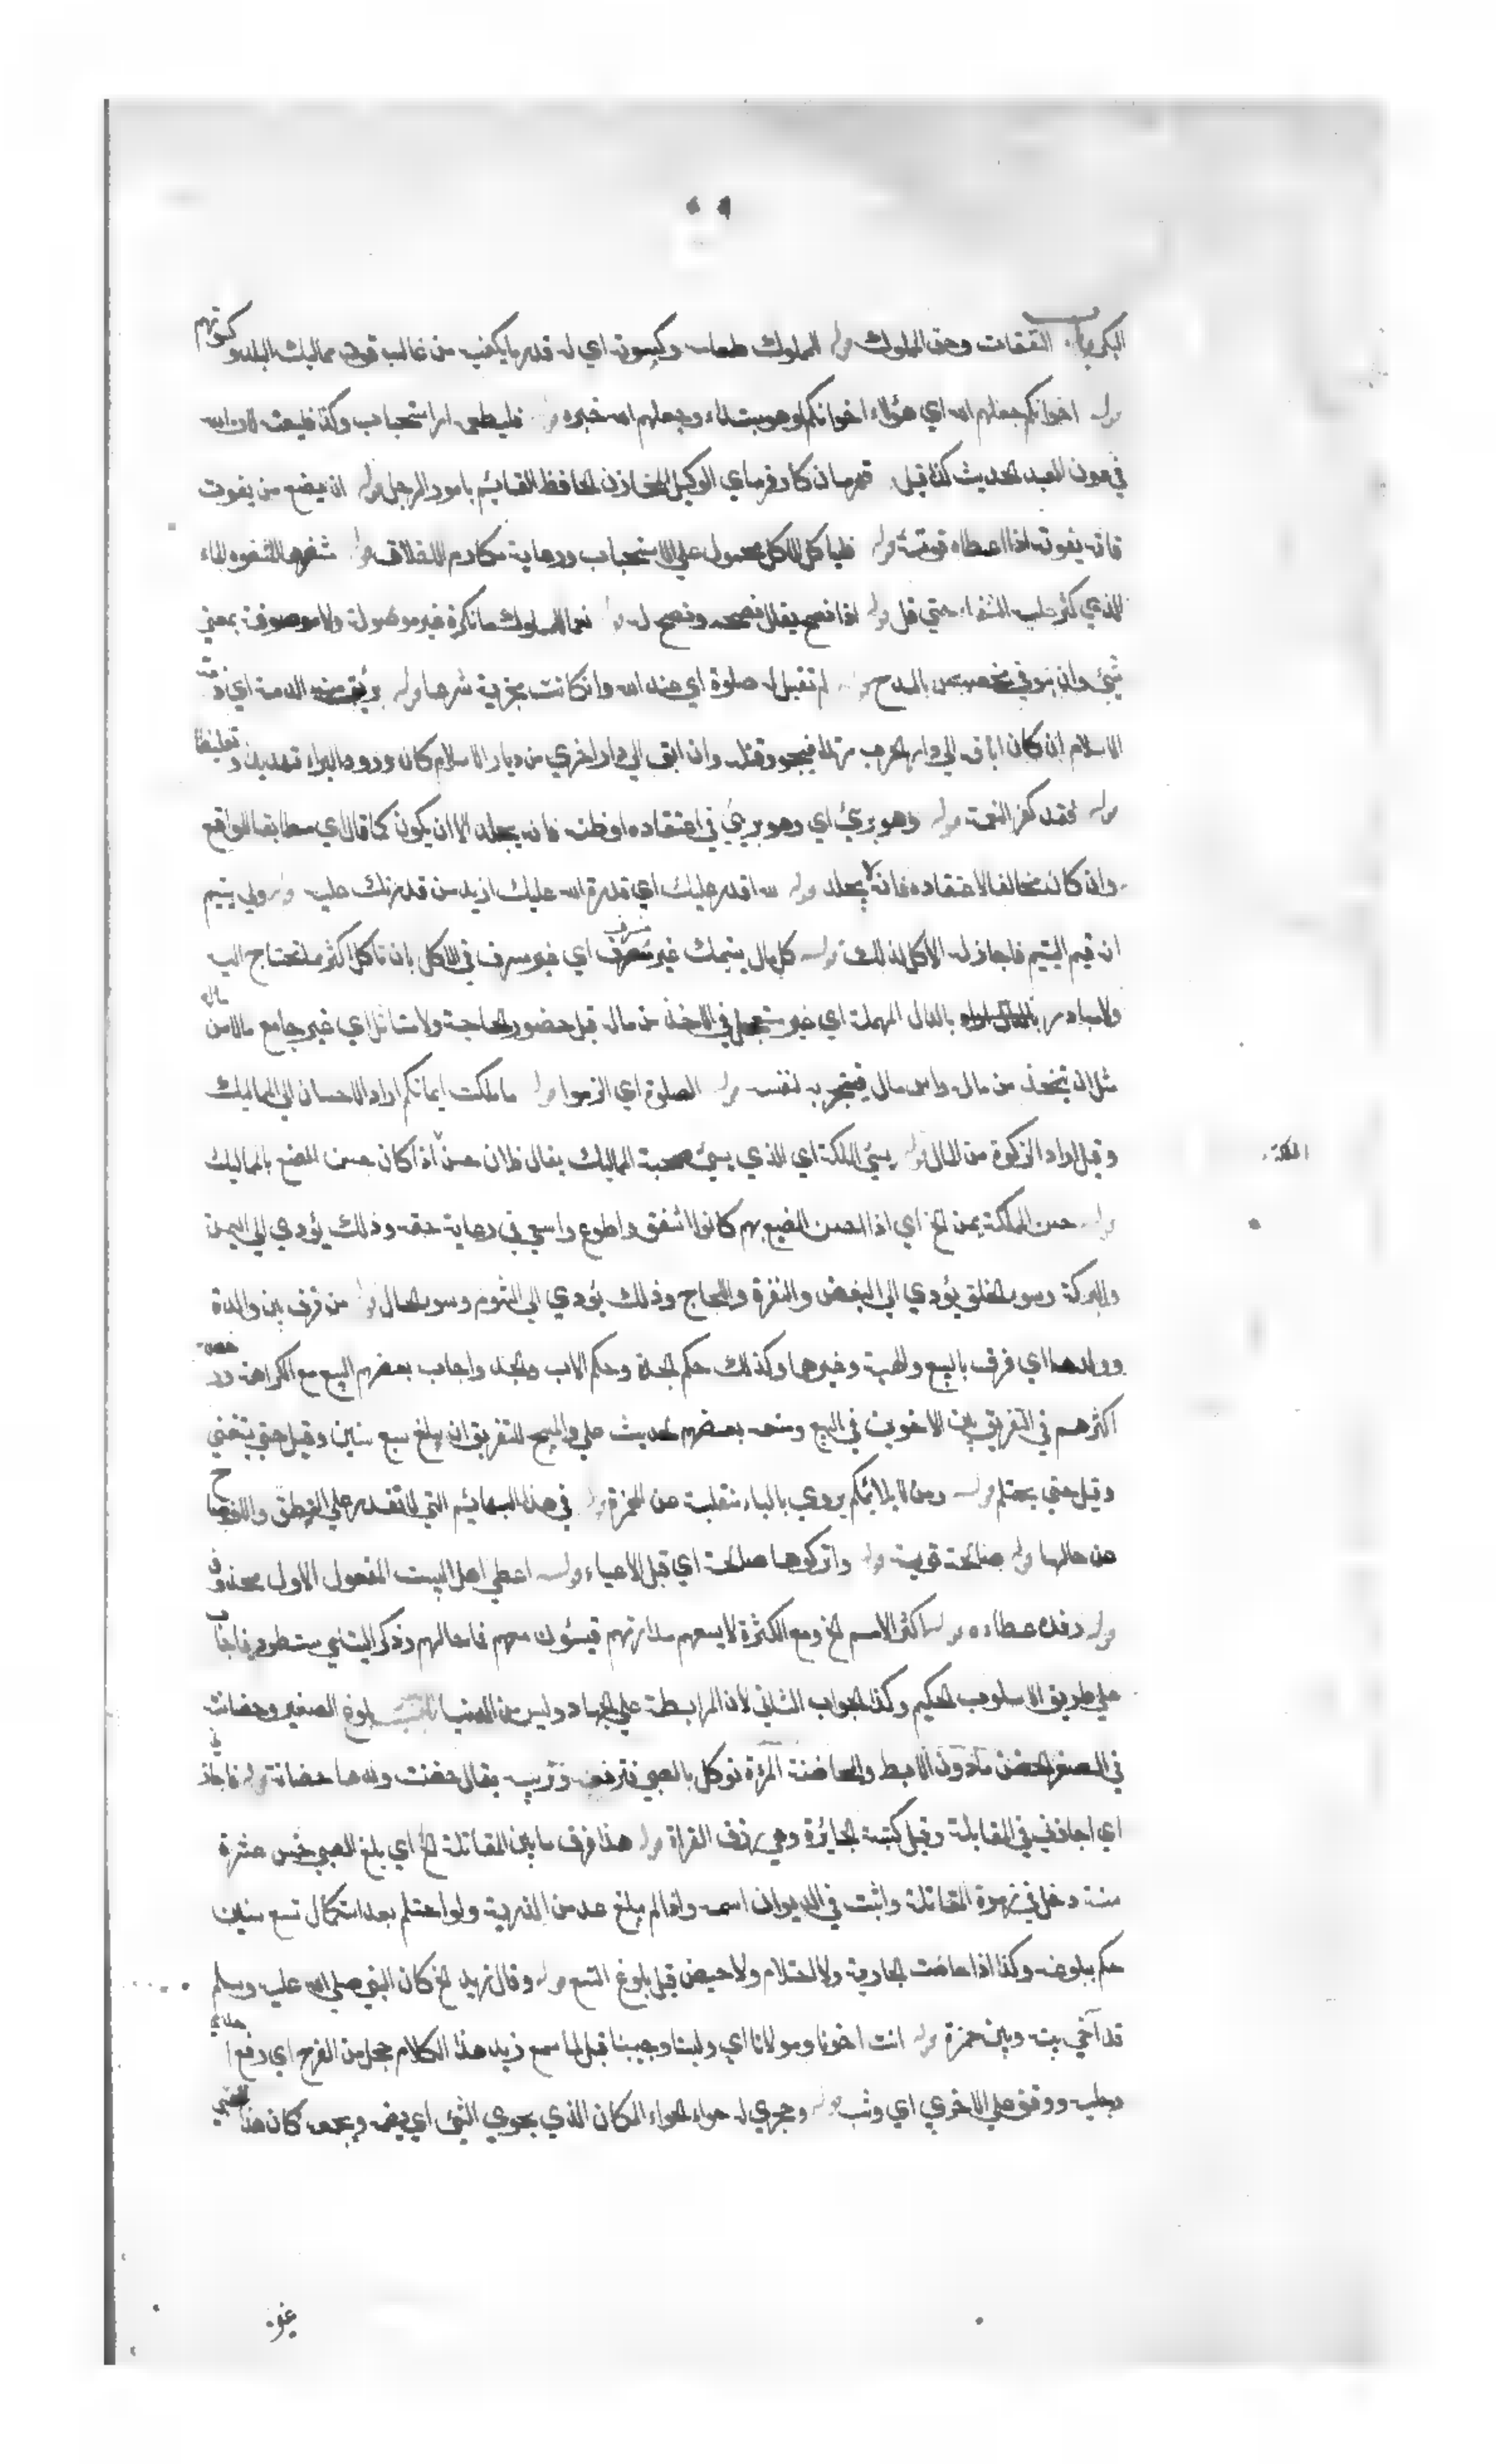 البكرباب النفقات وحق المملوك قوله المملوك طعامه وكسوته اي له قدر ما يكفيه من غالب قوت مماليك البلد وكسوتهم
قوله اخوانكم جعلهم الله اي هؤلاء اخوانكم او هو مبتداء وجعلهم الله خبره قوله فليطعمه امر استحباب وكذا فليعنه لان الله
في عون العبد الحديث كذا قيل قهرمان كارفرماي الوكيل الخازن الحافظ القايم بامور الرجل قوله ان يضيع من يقوت
فانه يقوته اذا اعطاه قوته قوله فلياكل الاكل محمول علي الاستحباب ورعاية مكارم الاخلاق قوله مشفوها المشفوه الماء
الذي كثر عليه الشفاه حتي قل قوله اذا نصح يقال نصحه ونصح له قوله نعما للمملوك ما نكرة غير موصولة ولا موصوفة بمعني
شيئ وان يتوفي مخصوص بالمدح قوله لم تقبل له صلوة اي عند الله وان كانت مجزية شرعا قوله برئت منه الذمة اي ذمة
الاسلام ان كان اباقه الي دار الحرب مرتدا فيجوز قتله وان ابق الي دار اخري من ديار الاسلام كان ورود البراءة تهديدا وتغليظا
قوله فقد كفر النعمة قوله وهو بريئ اي وهو بريئ في اعتقاده او ظنه فانه يجلد الا ان يكون كما قال اي مطابقا للواقع
وان كان مخالفا لاعتقاده فانه لا يجلد قوله لله اقدر عليك اي قدرة الله عليك ازيد من قدرتك عليه قوله ولي يتيم
ان قيم اليتيم فاجاز له الاكل لذلك قوله كل مال يتيمك غير مسرف اي غير مسرف في الاكل بان تاكل اكثر ما تحتاج اليه
ولا مبادر بالدال المهملة اي غير مستعجل في الاخذ من ماله قبل حضور الحاجة ولا متاثل اي غير جامع مالا من ماله
مثل ان يتخذ من ماله راس مال فيتجر به لنفسه قوله الصلوة اي الزموا قوله ما ملكت ايمانكم اراد الاحسان الي المماليك
وقيل اراد الزكوة من المال قوله سيئ الملكة اي الذي يسيئ صحبة المماليك يقال فلان حسن الملكة اذا كان حسن الصنع بالمماليك
قوله حسن الملكة يمن الخ اي اذا احسن الصنيع بهم كانوا اشفق واطوع واسعي في رعاية حقه وذلك يؤدي الي اليمن
والبركة وسوء الخلق يؤدي الي البغض والنفرة واللجاج وذلك يؤدي الي الشوم وسوء الحال قوله من فرق بين والدة
وولدها اي فرق بالبيع والهبة وغيرها وكذلك حكم الجدة وحكم الاب والجد واجاب بعضهم البيع مع الكراهة ورخص
اكثرهم في التفريق بين الاخوين في البيع ومنعه بعضهم لحديث علي والمبيح للتفريق ان يبلغ سبع سنين وقيل حتي يستغني
وقيل حتي يحتلم قوله ومن لا يلايمكم يروي بالياء منقلبة عن الهمزة قوله في هذا البهايم التي لا تقدر علي النطق والافصاح
عن حالها قوله صالحة قوية قوله واتركوها صالحة اي قبل الاعياء قوله اعطي اهل البيت المفعول الاول محذوف
قوله رفده عطاءه قوله اكثر الامم الخ ومع الكثرة لا يسعهم مداراتهم فيسؤن معهم فما حالهم وذكر اليتامي مستطرد فاجاب
علي طريق الاسلوب الحكيم وكذا الجواب الثاني لان المرابطة علي الجهاد وليس من الدنيا بلوغ الصغير وحضانته
في الصغر الحضن مادون الابط والحاضنة المرءة توكل بالصبي فترفعه وتربيه يقال حضنت ولدها حضانة قوله فاجازني
اي اجازني في المقابلة وقيل كتبه الجايزة وهي رزق الغزاة قوله هذا فرق ما بين المقاتلة الخ اي بلغ الصبي خمس عشرة
سنة دخل في زمرة المقاتلة واثبت في الديوان اسمه واذا لم يبلغ عد من الذرية ولو احتلم بعد استكمال تسع سنين
حكم ببلوغه وكذا اذا حاضت الجارية ولا احتلام ولا حيض قبل بلوغ التسع قوله وقال زيد الخ كان النبي صلي الله عليه وسلم
قد آخي بينه وبين حمزة قوله انت اخونا ومولانا اي ولينا وحبيبنا قيل لما سمع زيد هذا الكلام حجل من الفرح اي رفع احدي
رجليه ووقف علي الاخري اي وثب قوله وحجري له حواء الحواء المكان الذي يحوي الشيئ اي يضمه ويجمعه كان هذا الصبي
الملكة
غير